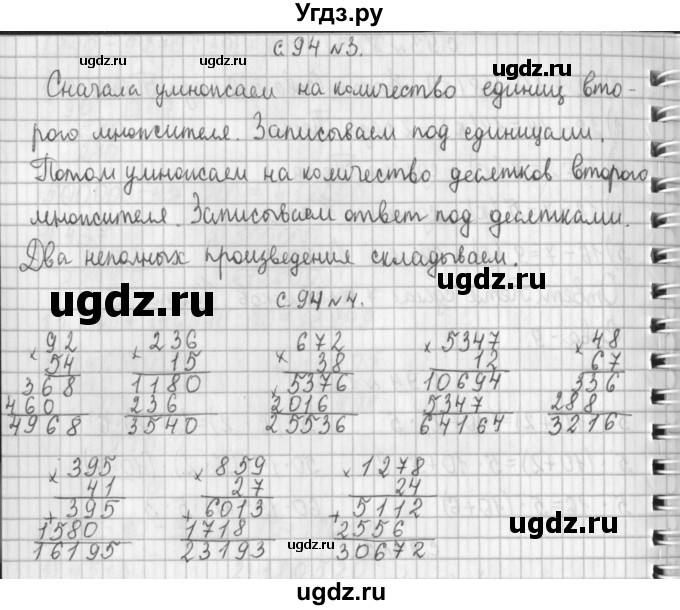 Угдз.ру
с. 94 №3.
ugdz.ru
ugdz.ru
Сначала умножаем на количество единиц вто-
рого множителя. Записываем под единицами.
ugdz.ru
ugdz.ru
Потом умножаем на количество десятков второго
множителя. Записываем ответ под десятками.
ugdz.ru
Два неполных произведения складываем.
ugdz.ru
ugdz.ru
с. 94 №4.
× 92 × 236 × 672 × 5347 × 48
54 15 38 12 67
368 1180 + 5376 10694 336
460 236 2016 5347 288
4968 3540 25536 64164 3216
× 395 × 859 × 1278
41 27 24
+ 395 + 6013 + 5112
1580 1718 2556
16195 23193 30672
ugdz.ru
ugdz.ru
ugdz.ru
ugdz.ru